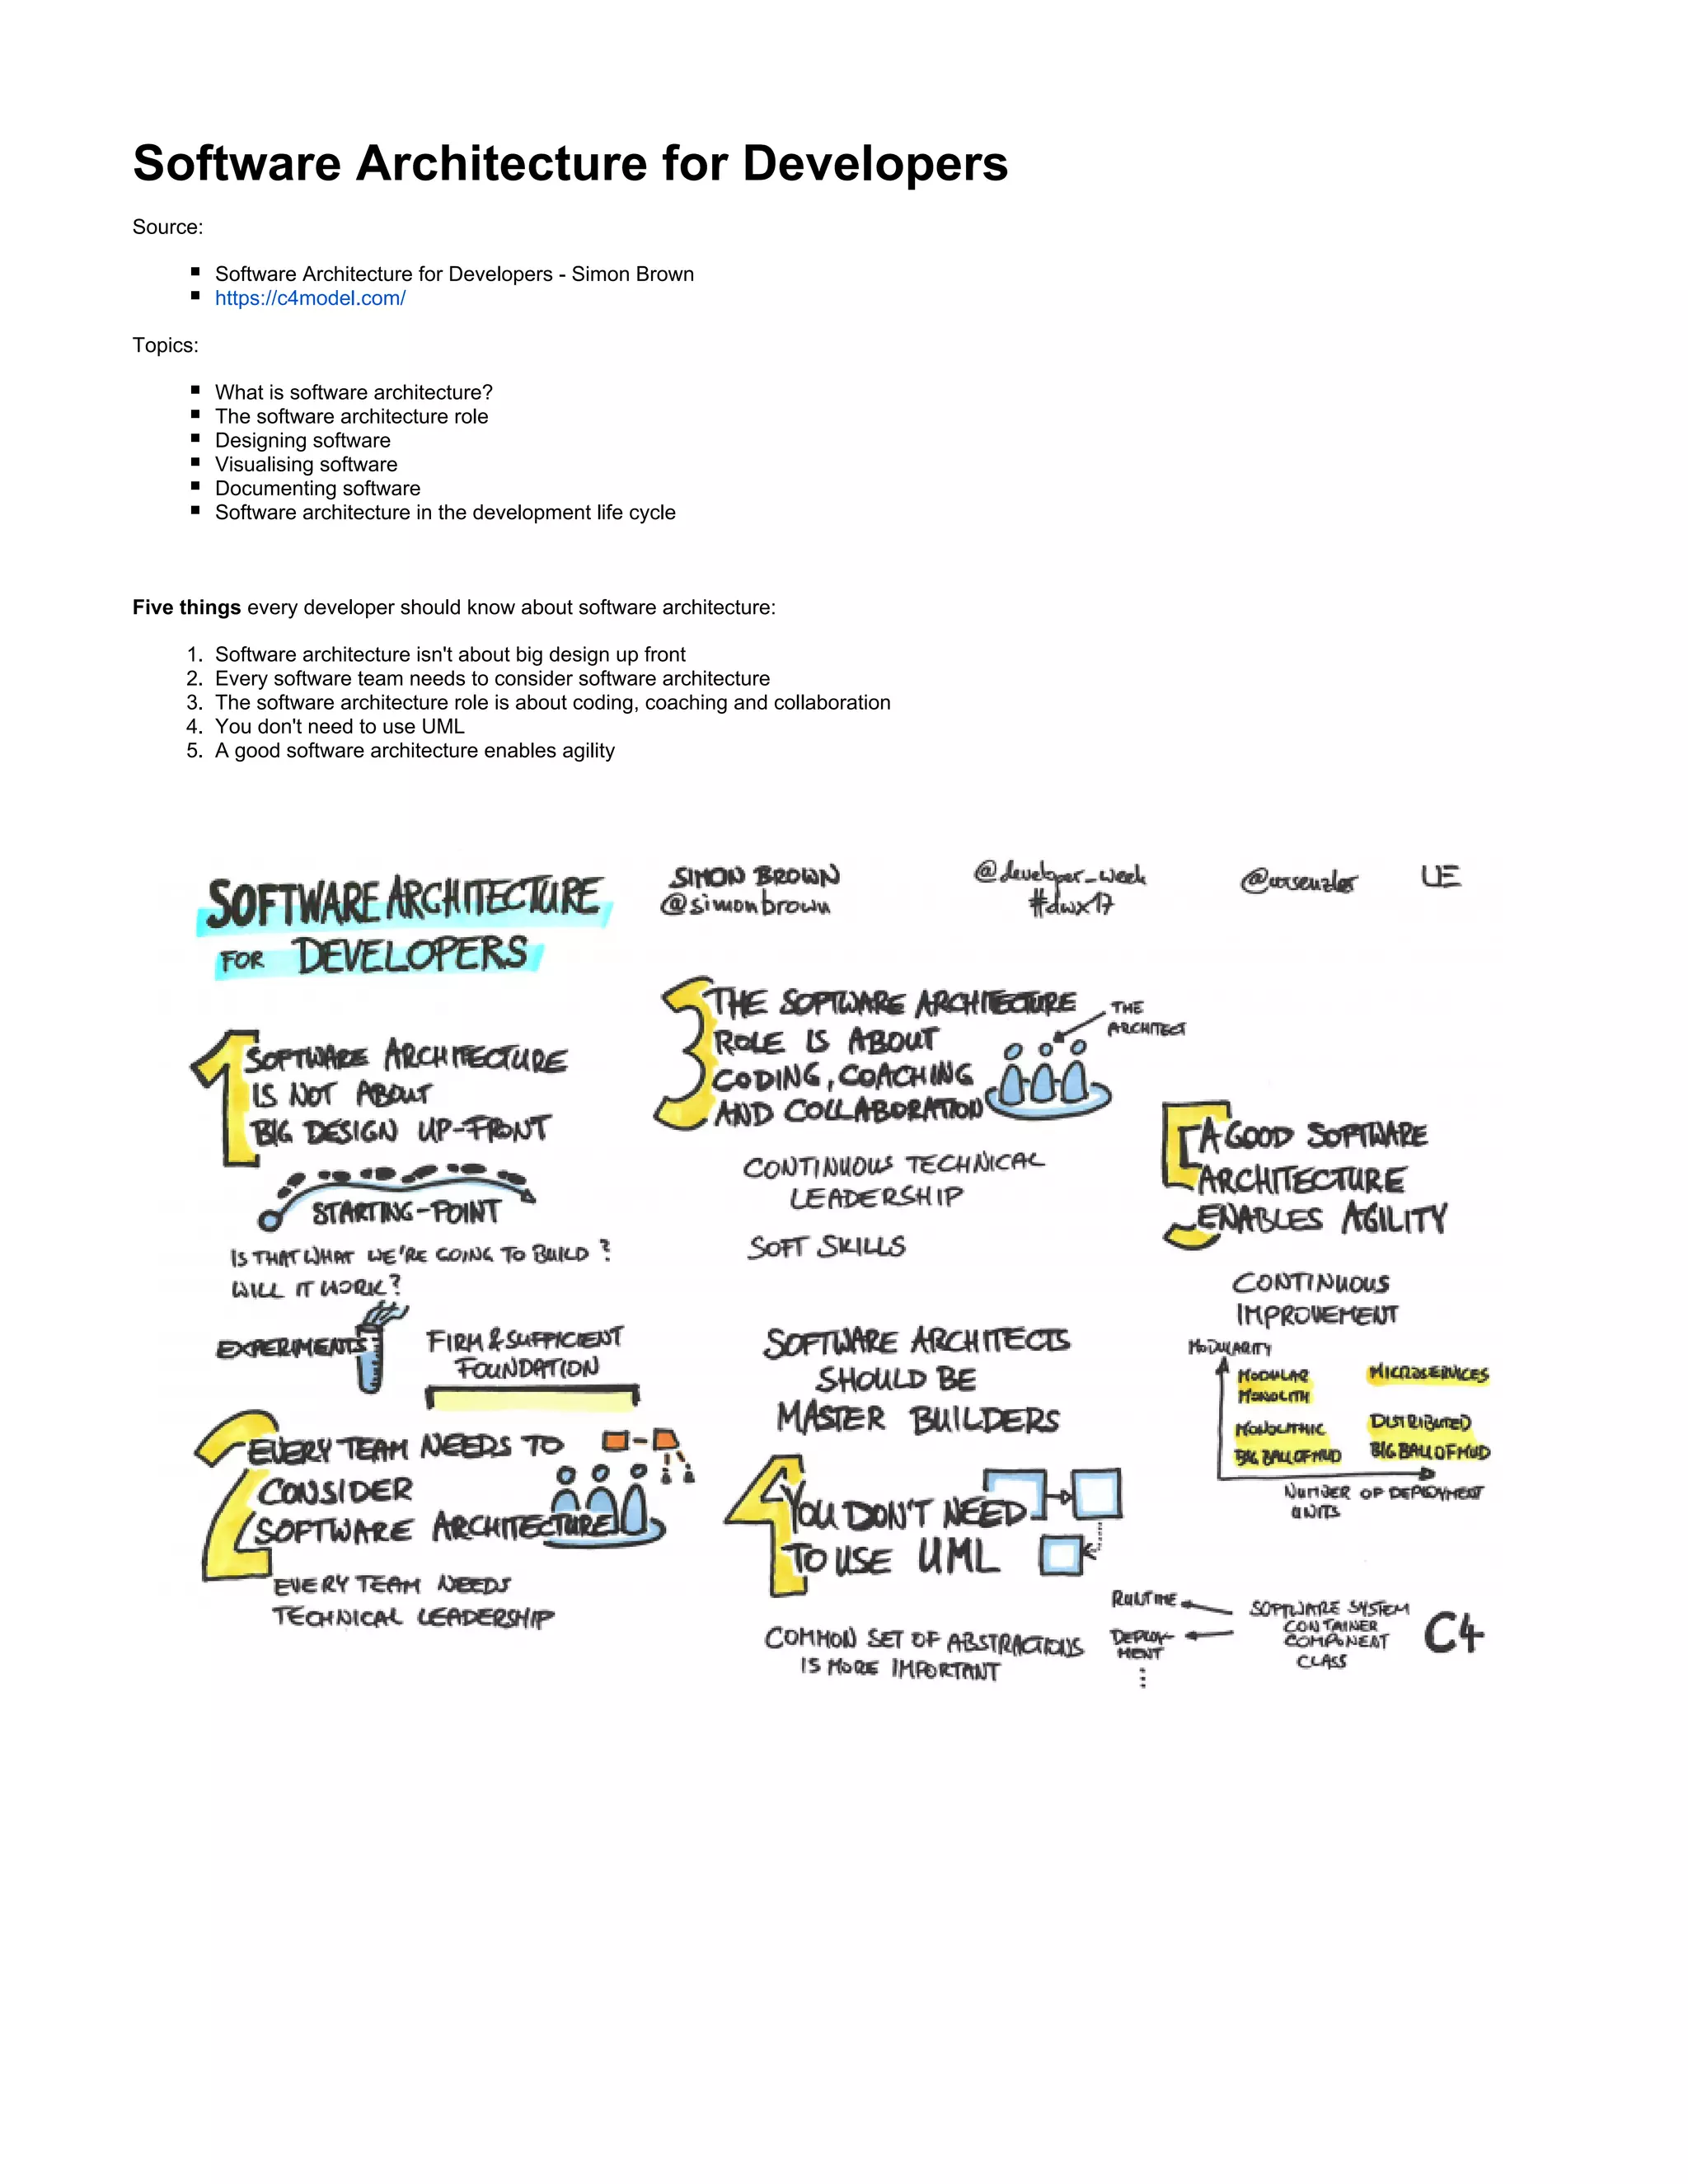 Software Architecture for Developers
Source:
Software Architecture for Developers - Simon Brown
https://c4model.com/
Topics:
What is software architecture?
The software architecture role
Designing software
Visualising software
Documenting software
Software architecture in the development life cycle
Five things every developer should know about software architecture:
1. Software architecture isn't about big design up front
2. Every software team needs to consider software architecture
3. The software architecture role is about coding, coaching and collaboration
4. You don't need to use UML
5. A good software architecture enables agility
SOFTWARE ARCHITECTURE
FOR DEVELOPERS
SIMON BROWN
@simonbrown
@developer_week
#dwx17
UE
1 SOFTWARE ARCHITECTURE
IS NOT ABOUT
BIG DESIGN UP-FRONT
STARTING-POINT
IS THAT WHAT WE'RE GOING TO BUILD?
WILL IT WORK?
EXPERIMENTS
FIRM & SUFFICIENT
FOUNDATION
2 EVERY TEAM NEEDS TO
CONSIDER
SOFTWARE ARCHITECTURE
EVERY TEAM NEEDS
TECHNICAL LEADERSHIP
3 THE SOFTWARE ARCHITECTURE
ROLE IS ABOUT
CODING, COACHING
AND COLLABORATION
THE
ARCHITECT
CONTINUOUS TECHNICAL
LEADERSHIP
SOFT SKILLS
SOFTWARE ARCHITECTS
SHOULD BE
MASTER BUILDERS
4 YOU DON'T NEED
TO USE UML
COMMON SET OF ABSTRACTIONS
IS MORE IMPORTANT
RUNTIME
DEPLOY-
MENT
SOFTWARE SYSTEM
CONTAINER
COMPONENT
CLASS
C4
5 A GOOD SOFTWARE
ARCHITECTURE
ENABLES AGILITY
CONTINUOUS
IMPROVEMENT
MODULARITY
MODULAR
MONOLITH
MICROSERVICES
MONOLITHIC
BIG BALL OF MUD
DISTRIBUTED
BIG BALL OF MUD
NUMBER OF DEPLOYMENT
UNITS